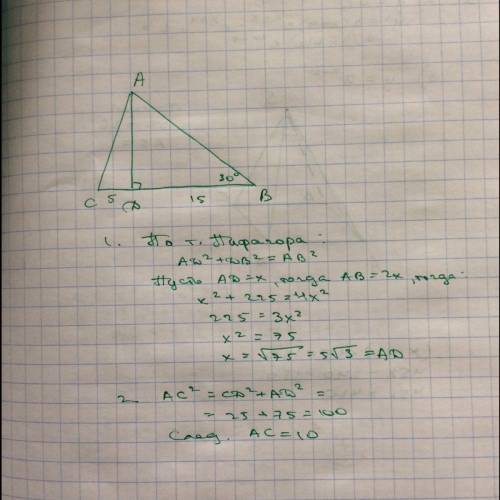 A
30°
C 5 D 15 B
1. По т. Пифагора:
AD² + DB² = AB²
Пусть AD = x, тогда AB = 2x, тогда:
x² + 225 = 4x²
225 = 3x²
x² = 75
x = √75 = 5√3 = AD
2. AC² = CD² + AD² =
= 25 + 75 = 100
След. AC = 10